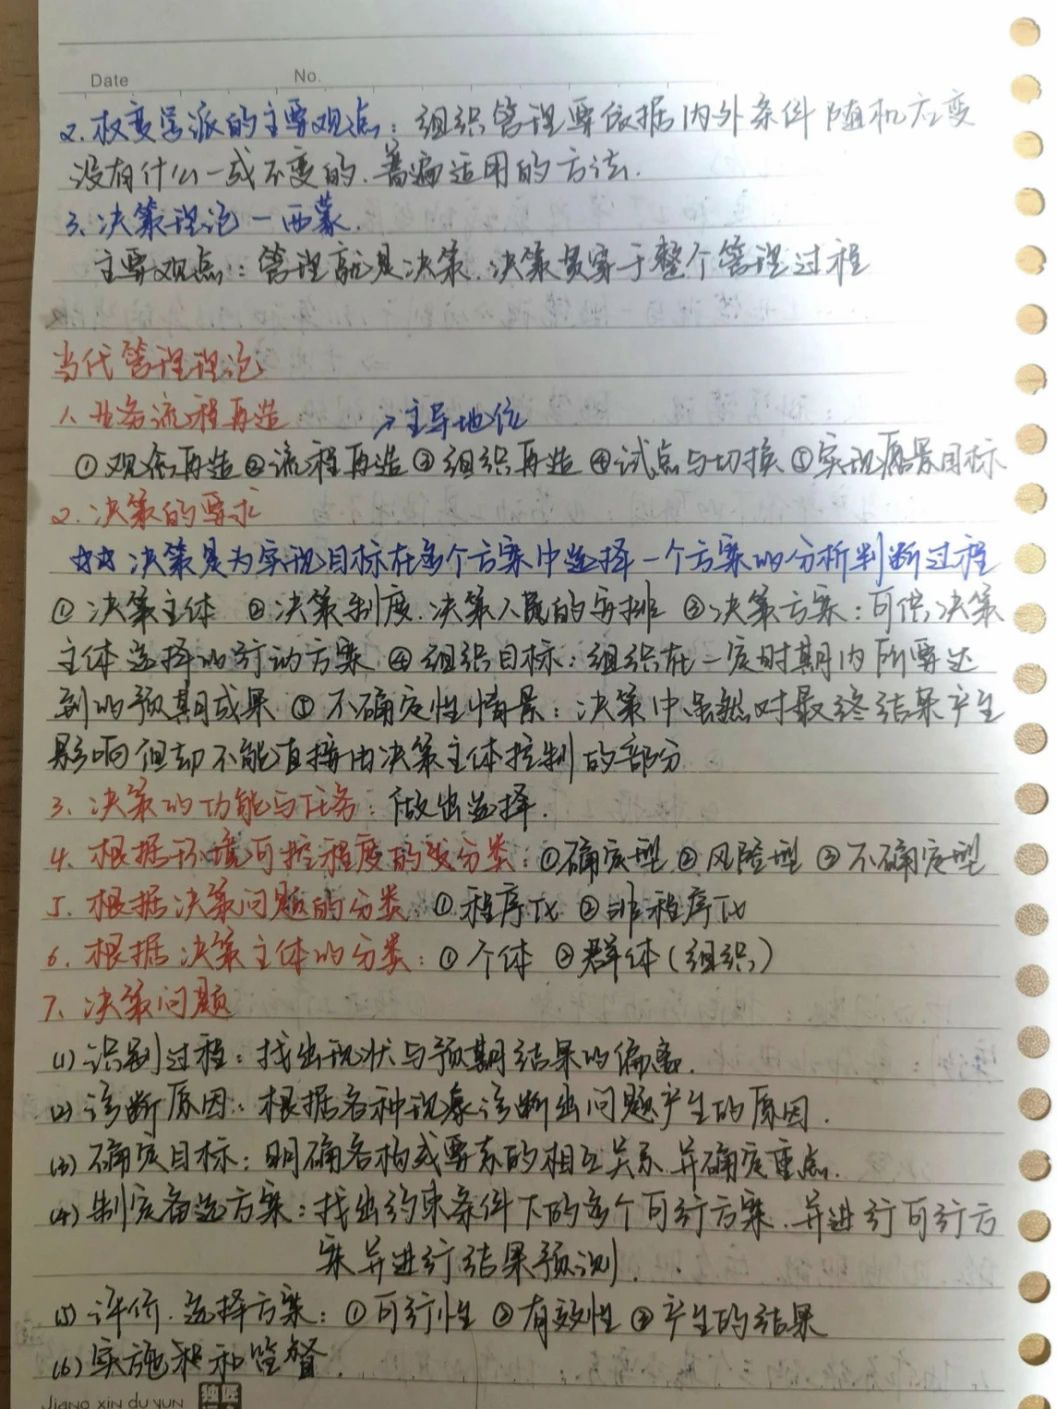 Date No.
2. 权变学派的主要观点：组织管理要依据内外条件随机应变
没有什么一成不变的、普遍适用的方法.
3. 决策理论一西蒙.
主要观点：管理就是决策.决策贯穿于整个管理过程
当代管理理论
1. 业务流程再造 →主导地位
①观念再造②流程再造③组织再造④试点与切换⑤实现愿景目标
2. 决策的要求
☆☆ 决策是为实现目标在多个方案中选择一个方案的分析判断过程
①决策主体 ②决策制度.决策人员的安排 ③决策方案：可供决策
主体选择的行动方案 ④组织目标：组织在一定时期内所要达
到的预期成果 ⑤不确定性情景：决策中虽然对最终结果产生
影响但却不能直接由决策主体控制的部分
3. 决策的功能与任务：做出选择.
4. 根据环境可控程度的分类：①确定型 ②风险型 ③不确定型
5. 根据决策问题的分类 ①程序化 ②非程序化
6. 根据决策主体的分类：①个体 ②群体(组织)
7. 决策问题
(1)识别过程：找出现状与预期结果的偏离.
(2)诊断原因：根据各种现象诊断出问题产生的原因.
(3)确定目标：明确各构成要素的相互关系.并确定重点.
(4)制定备选方案：找出约束条件下的多个可行方案.并进行可行方
案并进行结果预测.
(5)评价.选择方案：①可行性 ②有效性 ③产生的结果
(6)实施和监督.
Jiang xin du yun 独匠